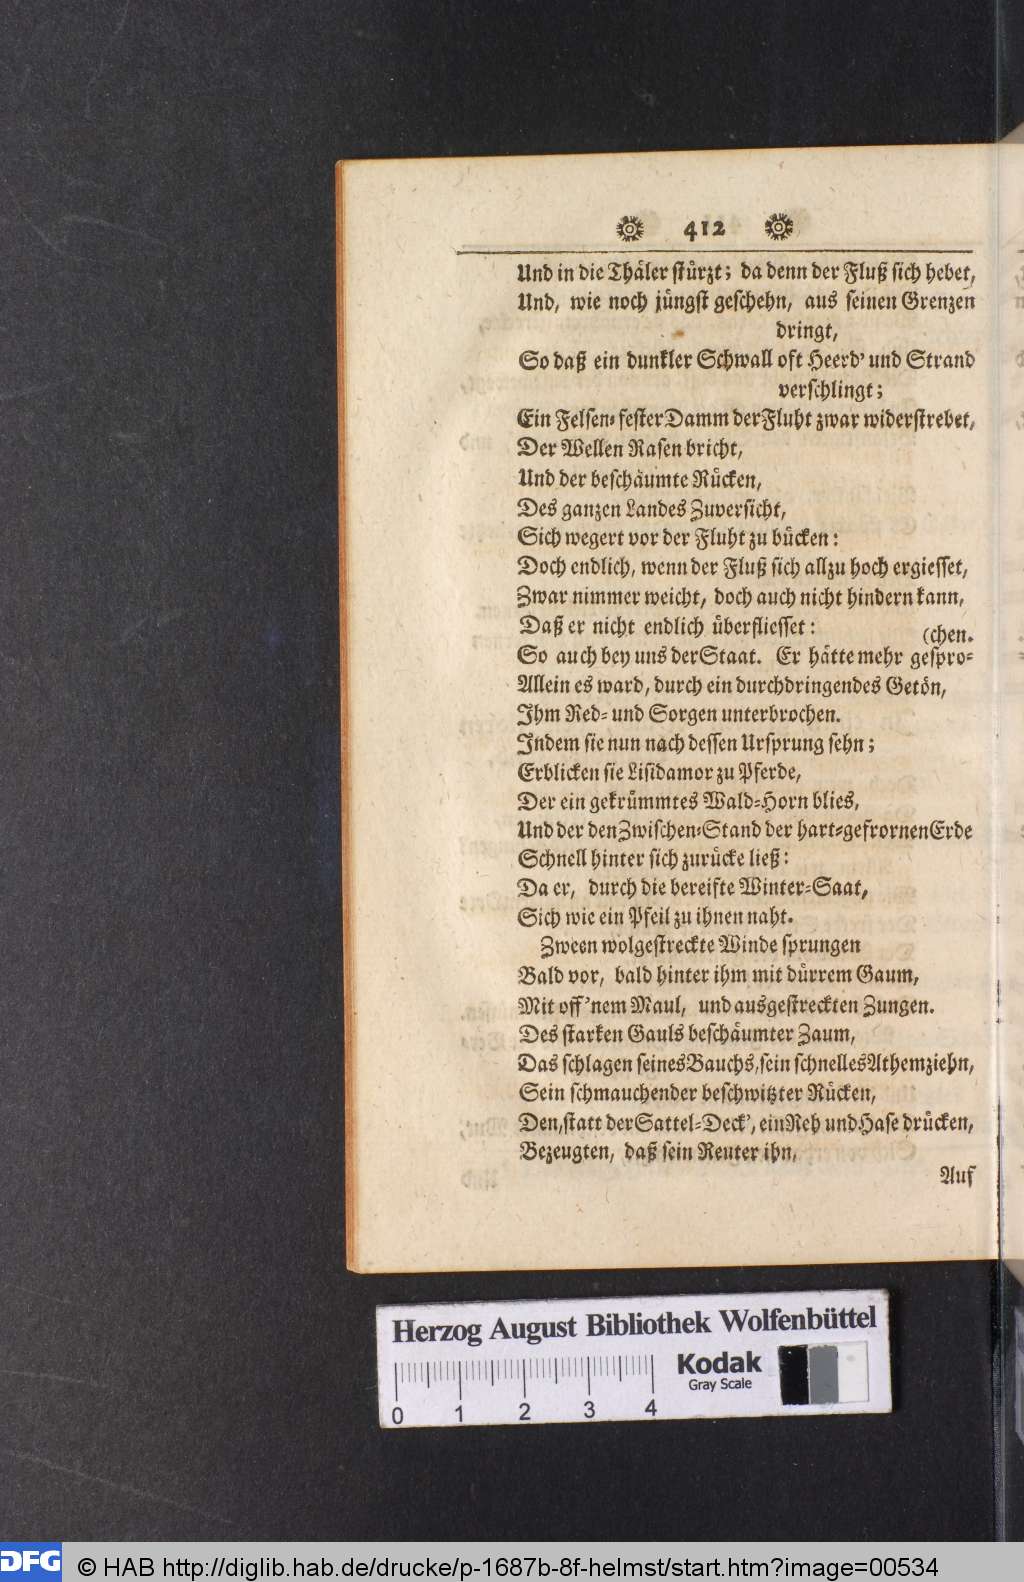 412
Und in die Thäler stürzt; da denn der Fluß sich hebet,
Und, wie noch jüngst geschehn, aus seinen Grenzen
dringt,
So daß ein dunkler Schwall oft Heerd' und Strand
verschlingt;
Ein Felsen-fester Damm der Fluht zwar widerstrebet,
Der Wellen Rasen bricht,
Und der beschäumte Rücken,
Des ganzen Landes Zuversicht,
Sich wegert vor der Fluht zu bücken:
Doch endlich, wenn der Fluß sich allzu hoch ergiesset,
Zwar nimmer weicht, doch auch nicht hindern kann,
Daß er nicht endlich überfliesset:
(chen.
So auch bey uns der Staat. Er hätte mehr gespro-
Allein es ward, durch ein durchdringendes Getön,
Ihm Red- und Sorgen unterbrochen.
Indem sie nun nach dessen Ursprung sehn;
Erblicken sie Lisidamor zu Pferde,
Der ein gekrümmtes Wald-Horn blies,
Und der den Zwischen-Stand der hart-gefrornen Erde
Schnell hinter sich zurücke ließ:
Da er, durch die bereifte Winter-Saat,
Sich wie ein Pfeil zu ihnen naht.
Zween wolgestreckte Winde sprungen
Bald vor, bald hinter ihm mit dürrem Gaum,
Mit off'nem Maul, und ausgestreckten Zungen.
Des starken Gauls beschäumter Zaum,
Das schlagen seines Bauchs, sein schnelles Athemziehn,
Sein schmauchender beschwitzter Rücken,
Den, statt der Sattel-Deck', ein Reh und Hase drücken,
Bezeugten, daß sein Reuter ihn,
Auf
Herzog August Bibliothek Wolfenbüttel
Kodak
Gray Scale
0 1 2 3 4
DFG © HAB http://diglib.hab.de/drucke/p-1687b-8f-helmst/start.htm?image=00534